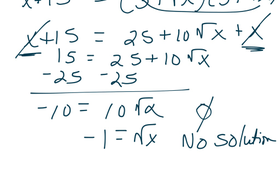 x + 15 = 25 + 10√x + x
15 = 25 + 10√x
-25 -25
-10 = 10√x ∅
-1 = √x No Solution